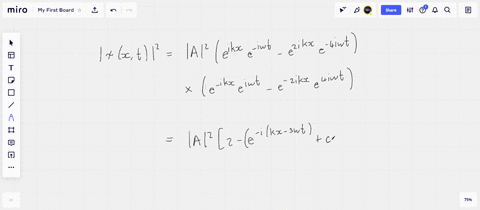 miro
My First Board
Share
|ψ(x,t)|² = |A|² (e^{ikx} e^{-iωt} - e^{2ikx} e^{-4iωt})
× (e^{-ikx} e^{iωt} - e^{-2ikx} e^{4iωt})
= |A|² [2 - (e^{-i(kx-3ωt)} + c
75%